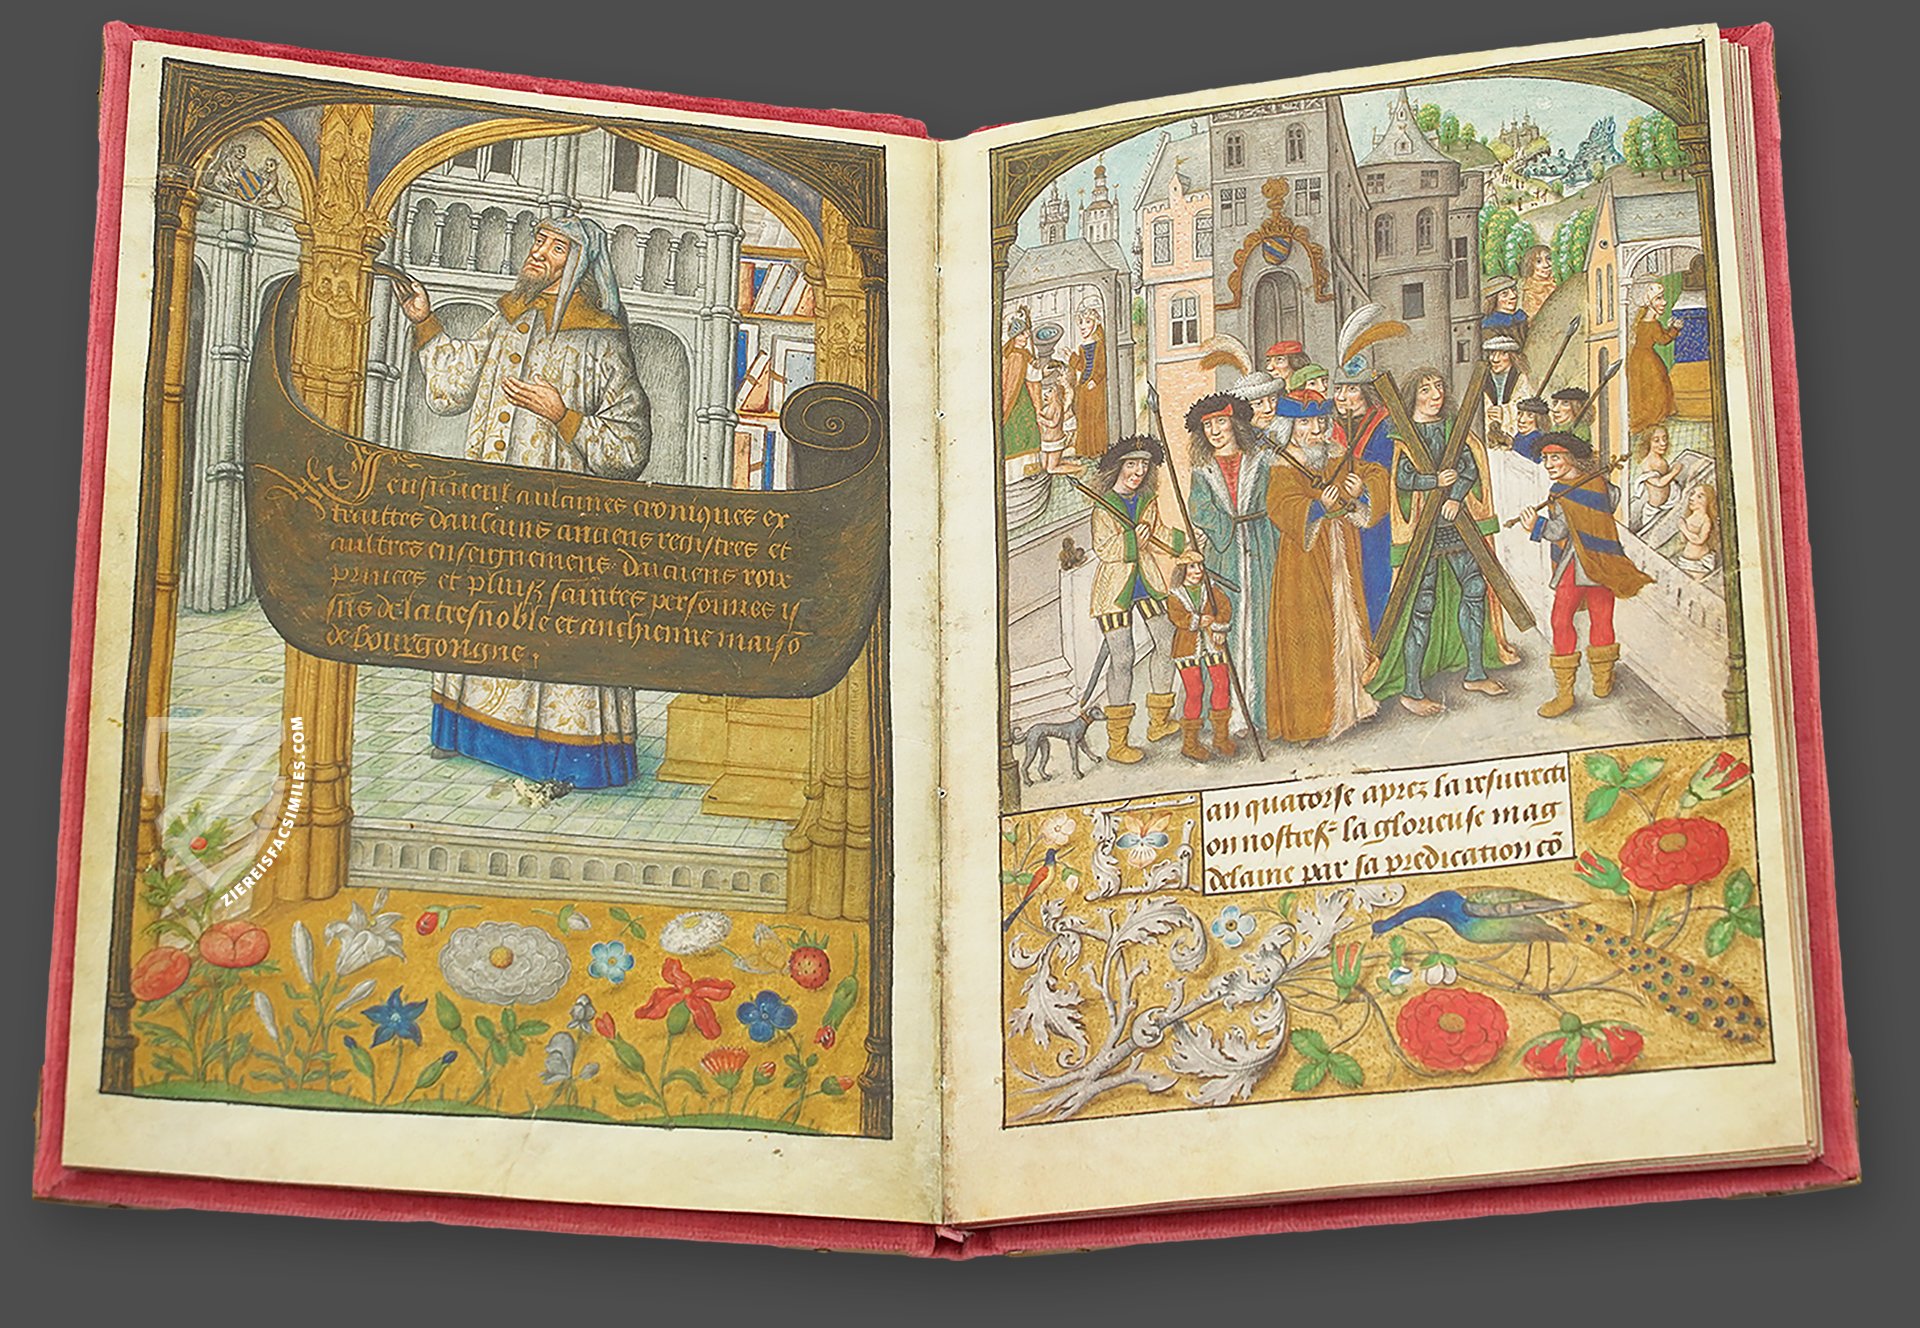 Icy Ensieuent aulcunes croniques ex
traittes daulcuns anciens registres et
aultres enseignemens danciens roix
princes et plus̃ saintes personnes is
sus de la tresnoble et anchienne maisõ
de bourgongne.
ZIEREISFACSIMILES.COM
Lan quatorse aprez la resurrecti
on nostre sr̃ la glorieuse mag
delaine par sa predication cõ